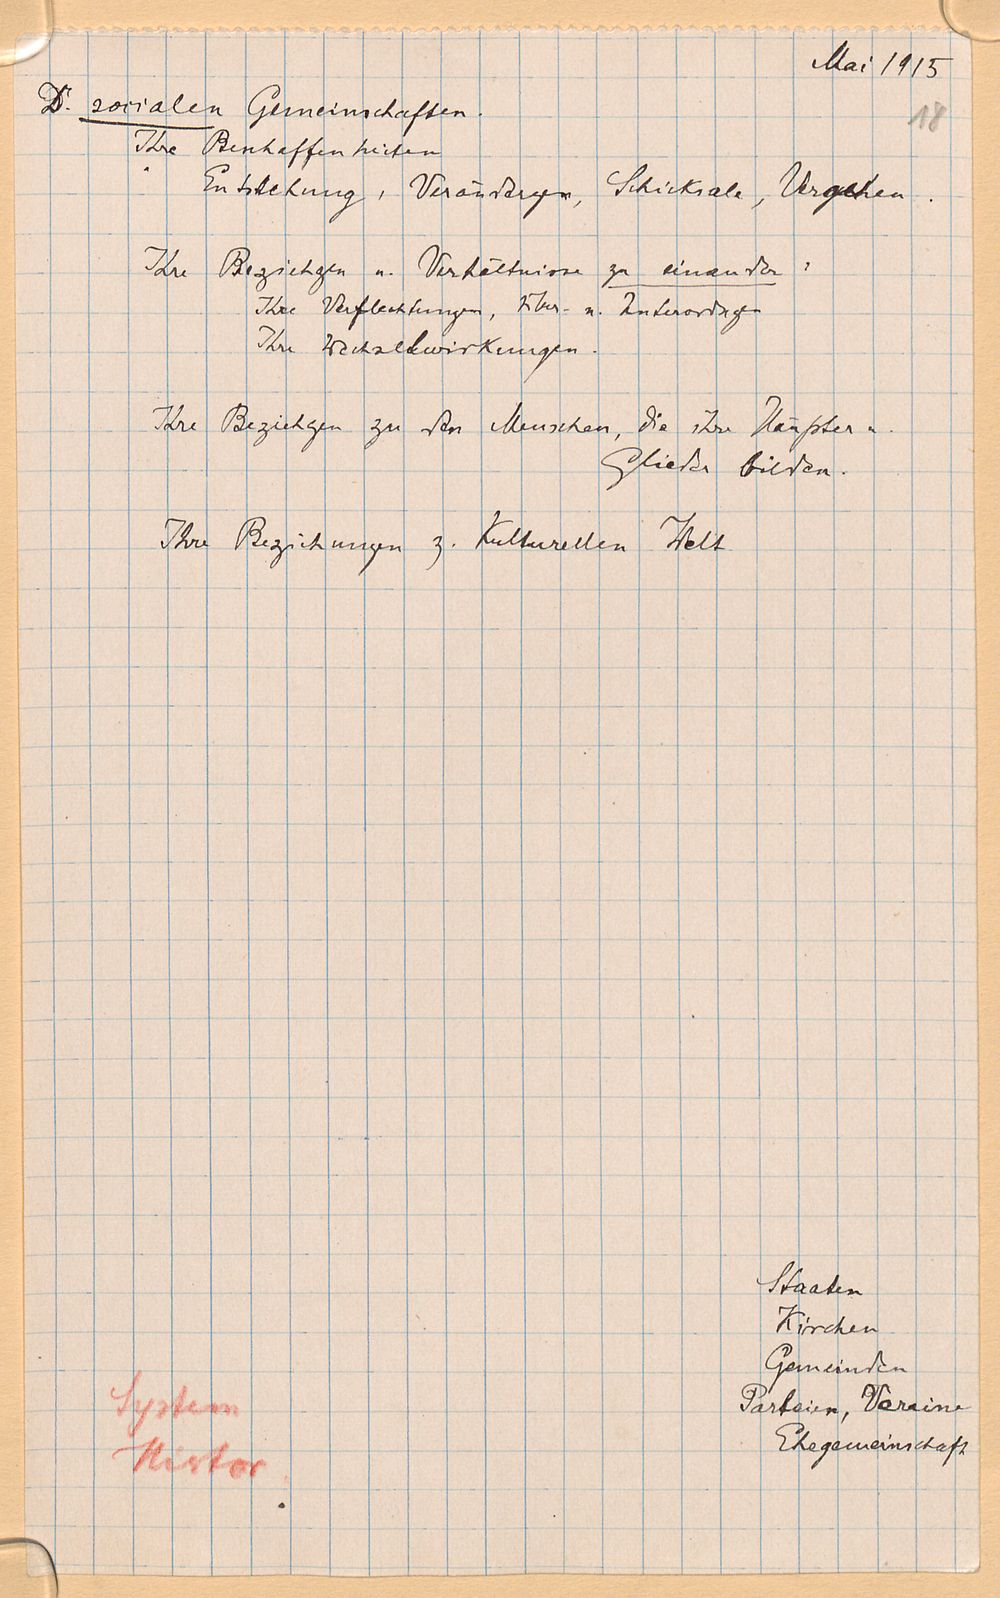 Mai 1915
18
D. socialen Gemeinschaften.
Ihre Beschaffenheiten
Entstehung, Verändergen, Schicksale, Vergehen.
Ihre Beziehgen u. Verhältnisse zu einander:
Ihre Verflechtungen, Über- u. Unterordngen
Ihre Wechselwirkungen.
Ihre Beziehgen zu den Menschen, die ihre Häupter u.
Glieder bilden.
Ihre Beziehungen z. Kulturellen Welt
Staaten
Kirchen
Gemeinden
Parteien, Vereine
Ehegemeinschaft
System
Histor.